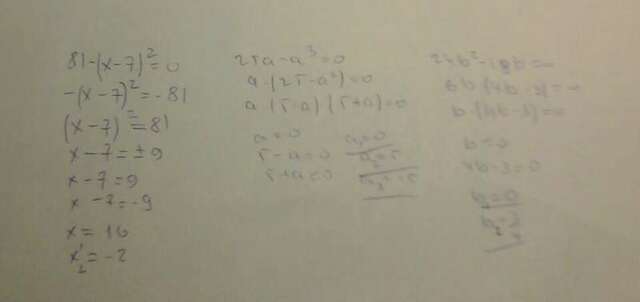 81-(x-7)²=0
-(x-7)²=-81
(x-7)²=81
x-7=±9
x-7=9
x-7=-9
x=16
x₂=-2
25a-a³=0
a·(25-a²)=0
a·(5-a)·(5+a)=0
a=0
5-a=0
5+a=0
a₁=0
a₂=5
a₃=-5
24b²-18b=0
6b·(4b-3)=0
b·(4b-3)=0
b=0
4b-3=0
b₁=0